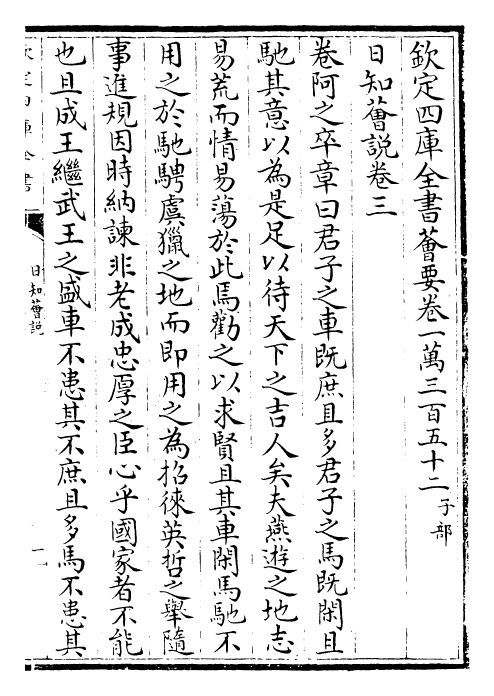 欽定四庫全書薈要卷一萬三百五十二 子部
日知薈說卷三
卷阿之卒章曰君子之車既庶且多君子之馬既閑且
馳其意以為是足以待天下之吉人矣夫燕遊之地志
易荒而情易蕩於此焉勸之以求賢且其車閑馬馳不
用之於馳騁虞獵之地而即用之為招徠英哲之舉隨
事進規因時納諫非老成忠厚之臣心乎國家者不能
也且成王繼武王之盛車不患其不庶且多馬不患其
欽定四庫全書
日知薈說
一